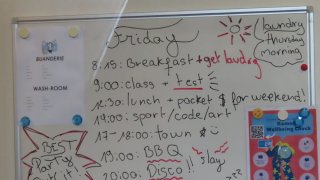 Friday
laundry
thursday
morning
8:15: Breakfast + get laundry
BUANDERIE
9:00: class + test
WASH-ROOM
12:30: lunch + pocket $ for weekend!
14:00: sport/code/art
17-18:00: town $
19:00: BBQ
slay
20:00: Disco!!
zzz
BEST
Party